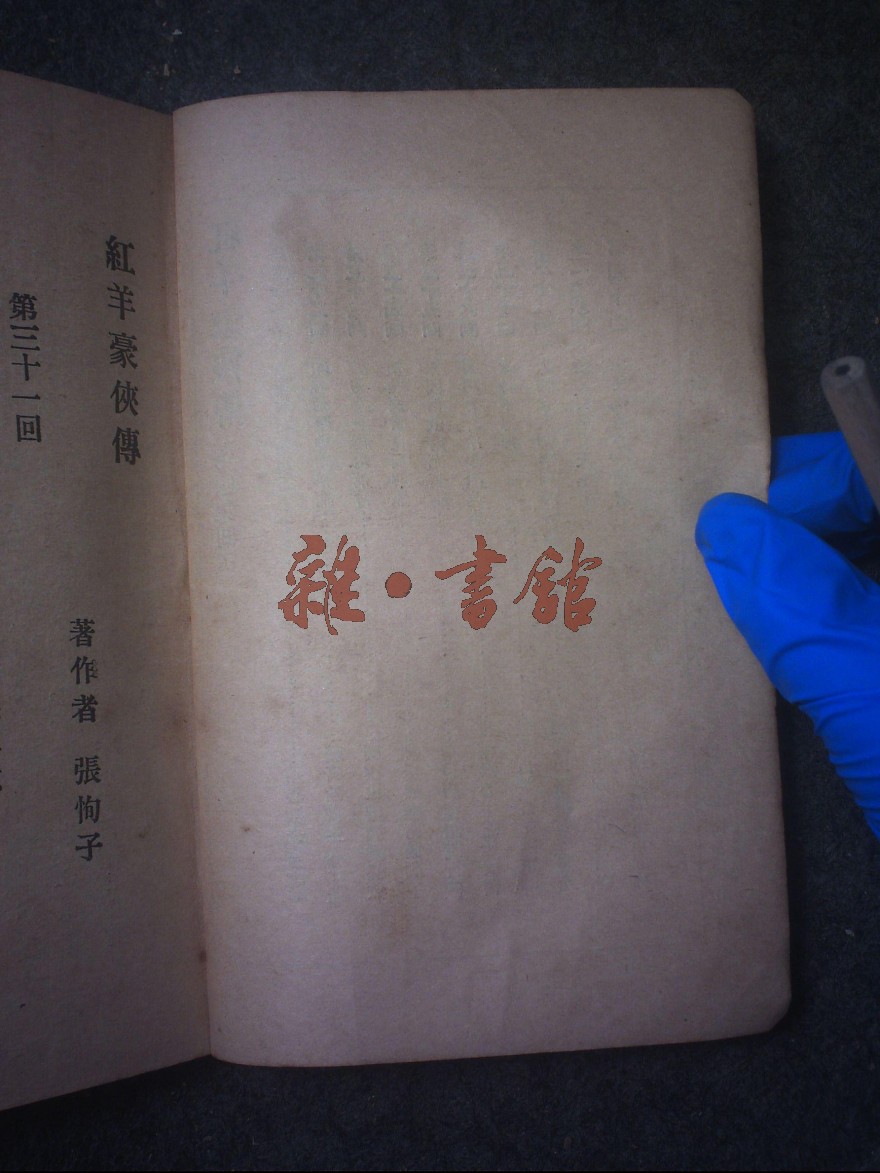 雜·書館
紅羊豪俠傳
著作者 張恂子
第三十一回